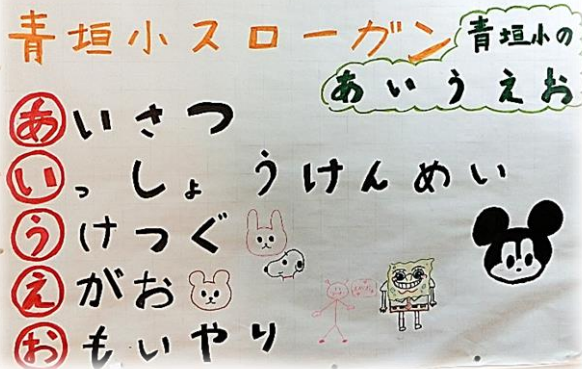 青垣小スローガン
青垣小の
あいうえお
あいさつ
いっしょうけんめい
うけつぐ
えがお
おもいやり